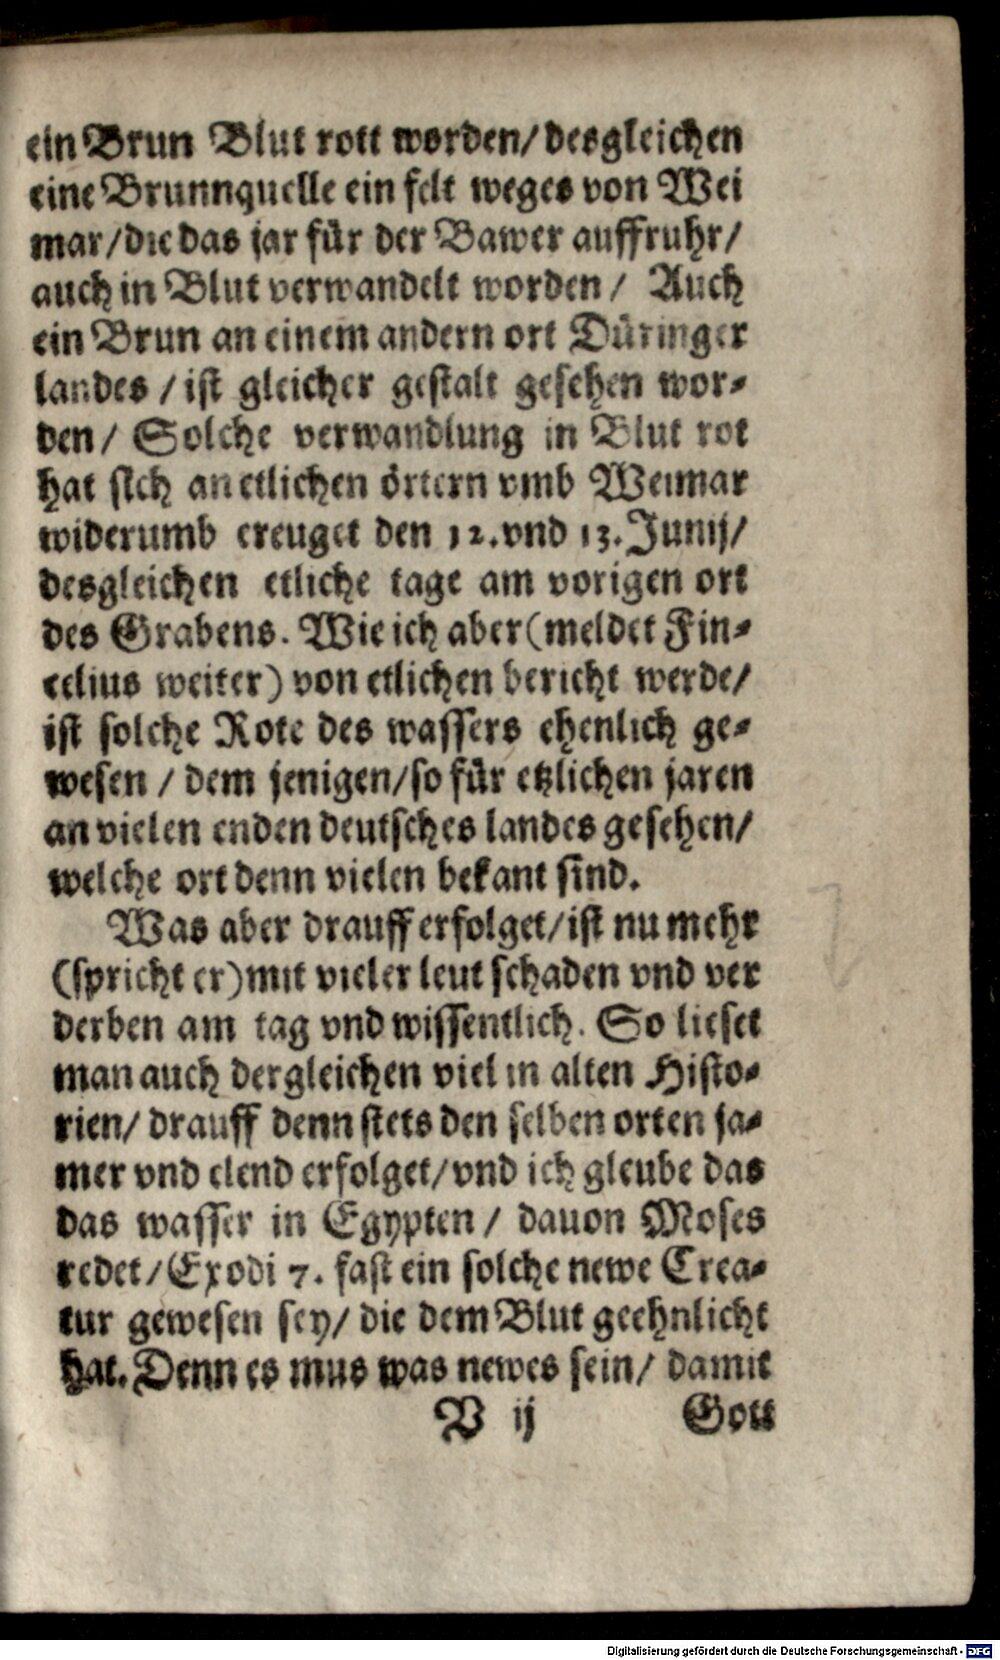 ein Brun Blut rott worden/ desgleichen
eine Brunnquelle ein felt weges von Wei
mar/die das jar für der Bawer auffruhr/
auch in Blut verwandelt worden/ Auch
ein Brun an einem andern ort Düringer
landes / ist gleicher gestalt gesehen wor-
den/ Solche verwandlung in Blut rot
hat sich an etlichen örtern vmb Weimar
widerumb ereuget den 12. vnd 13. Junij/
desgleichen etliche tage am vorigen ort
des Grabens. Wie ich aber (meldet Fin-
celius weiter) von etlichen bericht werde/
ist solche Rote des wassers ehenlich ge-
wesen / dem jenigen/so für etzlichen jaren
an vielen enden deutsches landes gesehen/
welche ort denn vielen bekant sind.
Was aber drauff erfolget/ist nu mehr
(spricht er) mit vieler leut schaden vnd ver
derben am tag vnd wissentlich. So lieset
man auch dergleichen viel in alten Histo-
rien/ drauff denn stets den selben orten ja-
mer vnd elend erfolget/vnd ich gleube das
das wasser in Egypten / dauon Moses
redet/Exodi 7. fast ein solche newe Crea-
tur gewesen sey/ die dem Blut geehnlicht
hat. Denn es mus was newes sein/ damit
V ij Gott
Digitalisierung gefördert durch die Deutsche Forschungsgemeinschaft - DFG